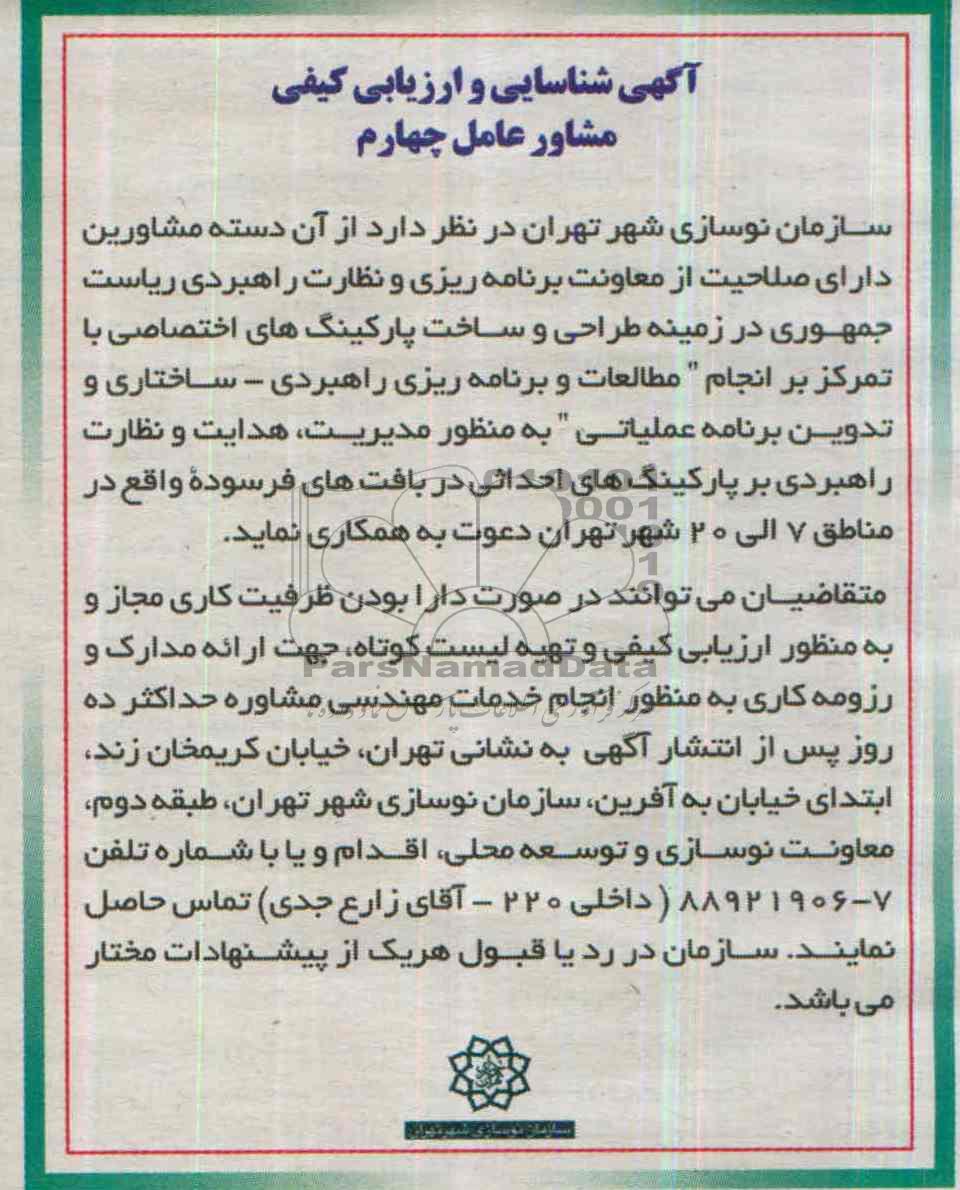 آگهی شناسایی و ارزیابی کیفی
مشاور عامل چهارم
سازمان نوسازی شهر تهران در نظر دارد از آن دسته مشاورین
دارای صلاحیت از معاونت برنامه ریزی و نظارت راهبردی ریاست
جمهوری در زمینه طراحی و ساخت پارکینگ های اختصاصی با
تمرکز بر انجام " مطالعات و برنامه ریزی راهبردی – ساختاری و
تدوین برنامه عملیاتی " به منظور مدیریت، هدایت و نظارت
راهبردی بر پارکینگ های احداثی در بافت های فرسودهٔ واقع در
مناطق ۷ الی ۲۰ شهر تهران دعوت به همکاری نماید.
متقاضیان می توانند در صورت دارا بودن ظرفیت کاری مجاز و
به منظور ارزیابی کیفی و تهیه لیست کوتاه، جهت ارائه مدارک و
ParsNamadData
رزومه کاری به منظور انجام خدمات مهندسی مشاوره حداکثر ده
روز پس از انتشار آگهی به نشانی تهران، خیابان کریمخان زند،
ابتدای خیابان به آفرین، سازمان نوسازی شهر تهران، طبقه دوم،
معاونت نوسازی و توسعه محلی، اقدام و یا با شماره تلفن
۷-۸۸۹۲۱۹۰۶ ( داخلی ۲۲۰ – آقای زارع جدی) تماس حاصل
نمایند. سازمان در رد یا قبول هریک از پیشنهادات مختار
می باشد.
سازمان نوسازی شهر تهران